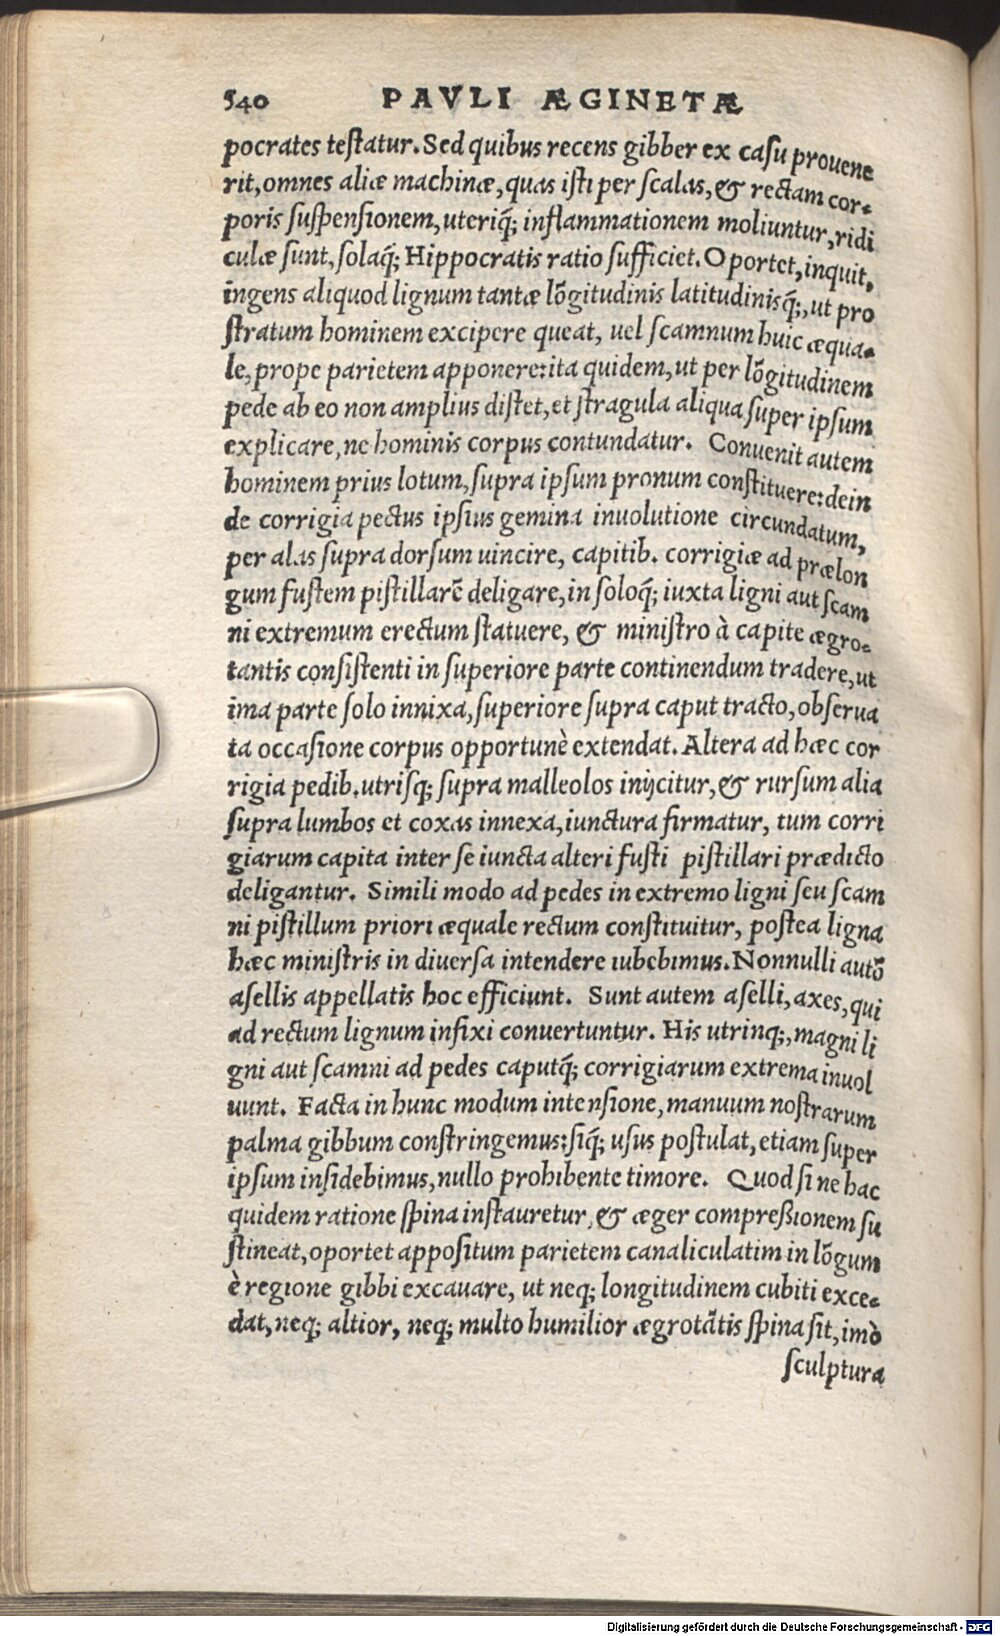 540 PAVLI ÆGINETÆ
pocrates testatur. Sed quibus recens gibber ex casu prouene
rit, omnes aliæ machinæ, quas isti per scalas, & rectam cor-
poris suspensionem, uteriq́; inflammationem moliuntur, ridi
culæ sunt, solaq́; Hippocratis ratio sufficiet. Oportet, inquit,
ingens aliquod lignum tantæ lõgitudinis latitudinisq́;, ut pro
stratum hominem excipere queat, uel scamnum huic æqua-
le, prope parietem apponere: ita quidem, ut per lõgitudinem
pede ab eo non amplius distet, et stragula aliqua super ipsum
explicare, ne hominis corpus contundatur. Conuenit autem
hominem prius lotum, supra ipsum pronum constituere: dein
de corrigia pectus ipsius gemina inuolutione circundatum,
per alas supra dorsum uincire, capitib. corrigiæ ad prælon
gum fustem pistillarẽ deligare, in soloq́; iuxta ligni aut scam
ni extremum erectum statuere, & ministro à capite ægro-
tantis consistenti in superiore parte continendum tradere, ut
ima parte solo innixa, superiore supra caput tracto, obserua
ta occasione corpus opportunè extendat. Altera ad hæc cor
rigia pedib. utrisq; supra malleolos inijcitur, & rursum alia
supra lumbos et coxas innexa, iunctura firmatur, tum corri
giarum capita inter se iuncta alteri fusti pistillari prædicto
deligantur. Simili modo ad pedes in extremo ligni seu scam
ni pistillum priori æquale rectum constituitur, postea ligna
hæc ministris in diuersa intendere iubebimus. Nonnulli autõ
asellis appellatis hoc efficiunt. Sunt autem aselli, axes, qui
ad rectum lignum infixi conuertuntur. His utrinq;, magni li
gni aut scamni ad pedes caputq́; corrigiarum extrema inuol
uunt. Facta in hunc modum intensione, manuum nostrarum
palma gibbum constringemus: siq́; usus postulat, etiam super
ipsum insidebimus, nullo prohibente timore. Quod si ne hac
quidem ratione spina instauretur, & æger compreßionem su
stineat, oportet appositum parietem canaliculatim in lõgum
è regione gibbi excauare, ut neq; longitudinem cubiti exce-
dat, neq; altior, neq; multo humilior ægrotãtis spina sit, imò
sculptura
Digitalisierung gefördert durch die Deutsche Forschungsgemeinschaft - DFG